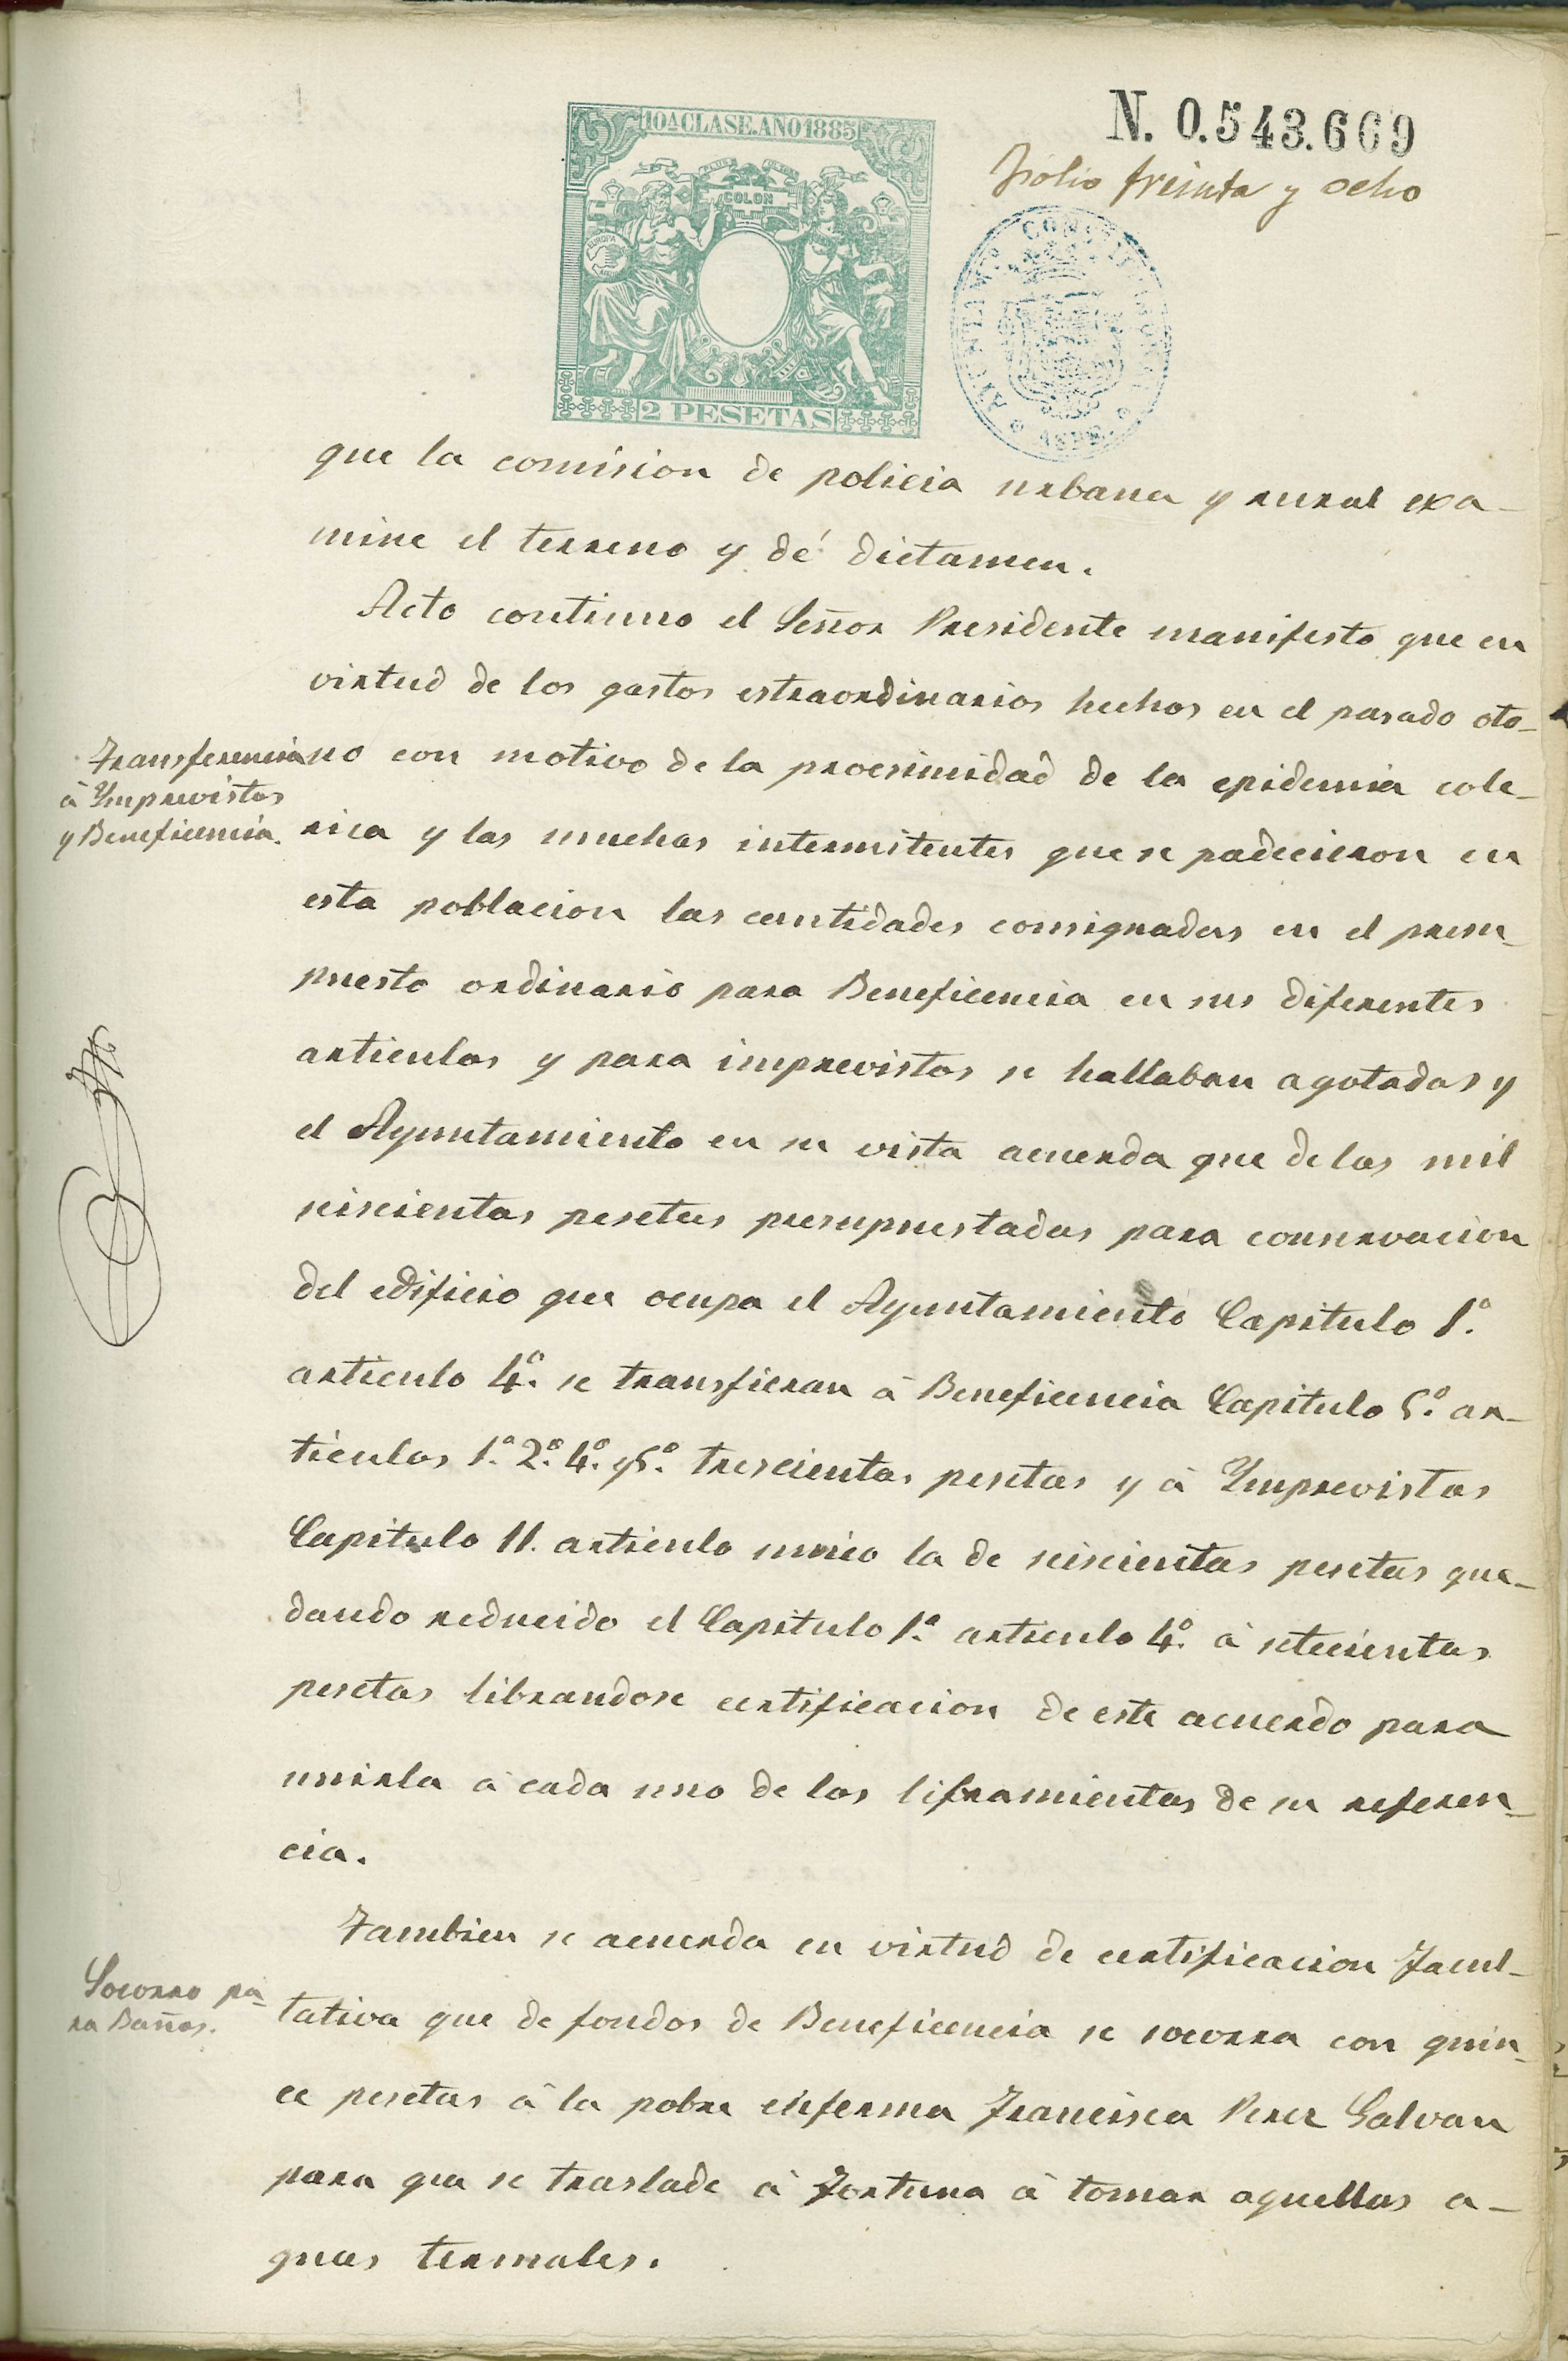 N. 0.543.669
10ª CLASE. AÑO 1885
Folio treinta y ocho
PLUS ULTRA
COLON
EUROPA
2 PESETAS
AYUNTAMIENTO CONSTITUCIONAL
que la comision de policia urbana y rural exa-
mine el terreno y dé dictamen.
Acto continuo el Señor Presidente manifesto que en
virtud de los gastos estraordinarios hechos en el pasado oto-
Transferencia
á Ymprevistos
y Beneficencia.
no con motivo de la procsimidad de la epidemia cole-
rica y las muchas intermitentes que se padecieron en
esta poblacion las cantidades consignadas en el presu-
puesto ordinario para Beneficencia en sus diferentes
articulos y para imprevistos se hallaban agotadas y
el Ayuntamiento en su vista acuerda que de las mil
seiscientas pesetas presupuestadas para conservacion
del edificio que ocupa el Ayuntamiento Capitulo 1.º
articulo 4.º se transfieran á Beneficencia Capitulo 5.º ar-
ticulos 1.º 2.º 4.º y 5.º trescientas pesetas y á Ymprevistos
Capitulo 11. articulo unico la de seiscientas pesetas que-
dando reducido el Capitulo 1.º articulo 4.º á setecientas
pesetas librandose certificacion de este acuerdo para
unirla á cada uno de los libramientos de su referen-
cia.
Tambien se acuerda en virtud de certificacion Facul-
Socorro pa-
ra Baños.
tativa que de fondos de Beneficencia se socorra con quin-
ce pesetas á la pobre enferma Francisca Perez Galvan
para que se traslade á Fortuna á tomar aquellas a-
guas termales.